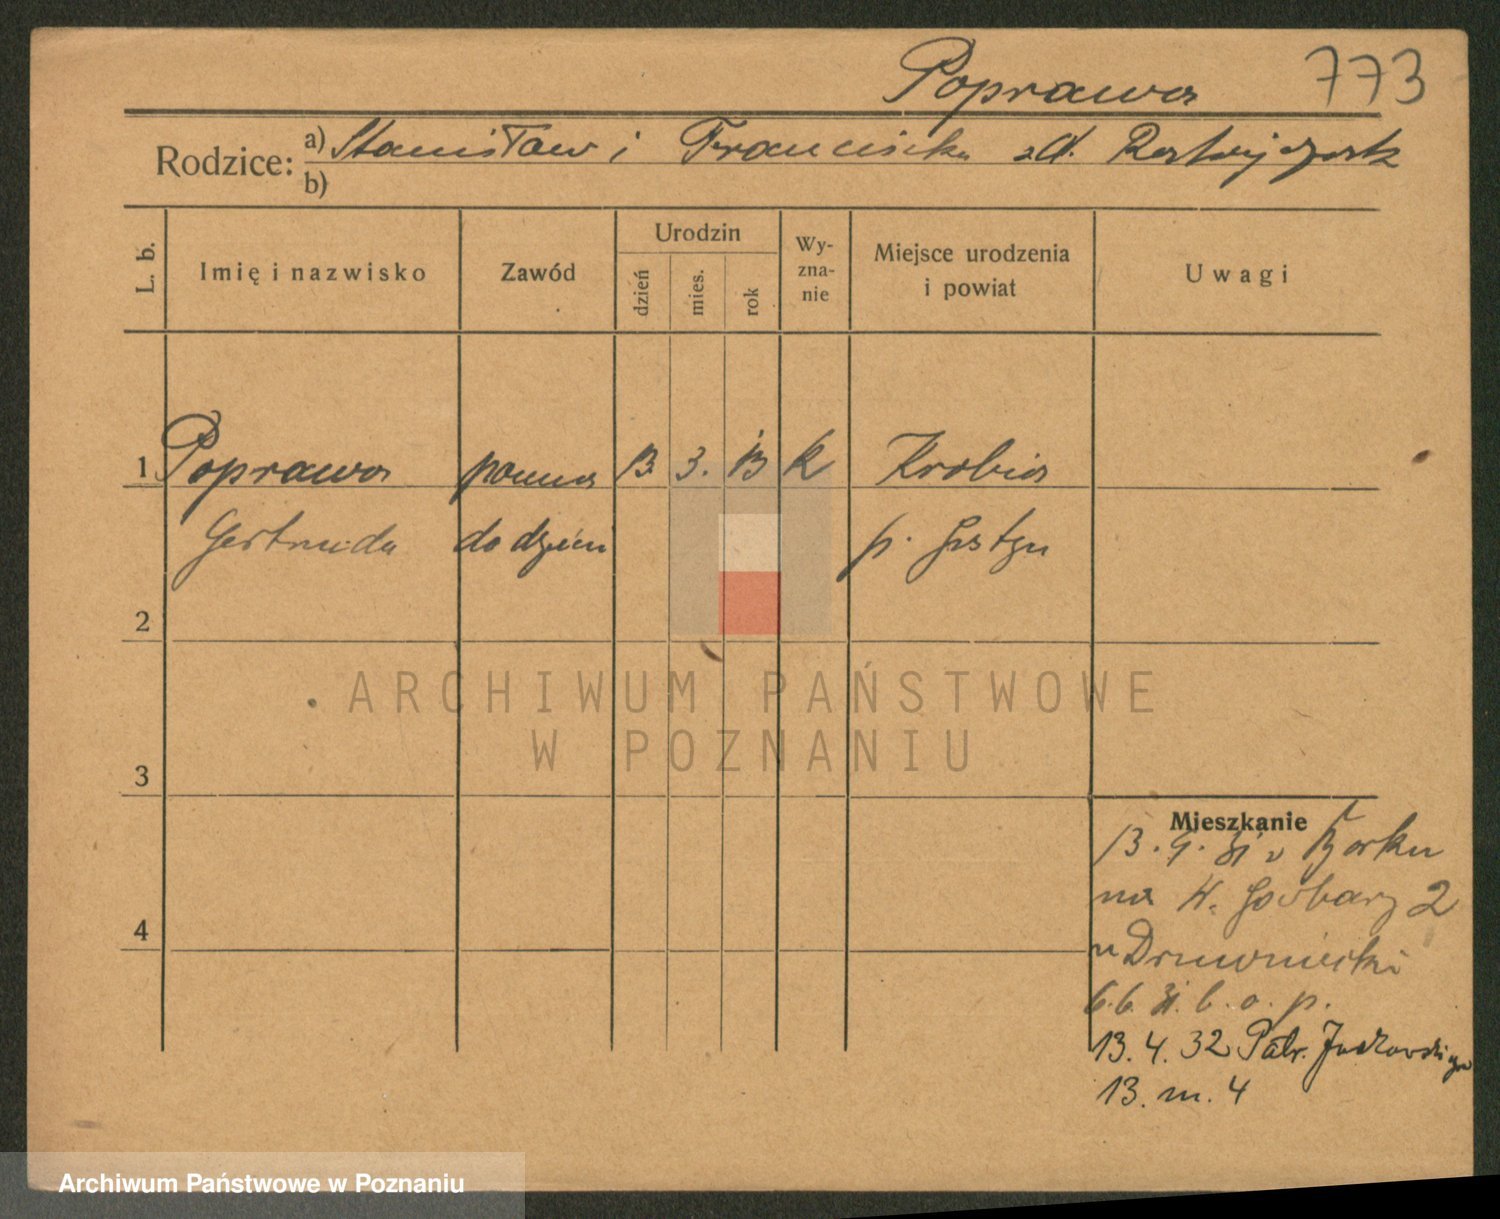 Poprawa 773
Rodzice: a) Stanisław i Franciszka zd. Ratajczak
b)
L. b.
Imię i nazwisko
Zawód
Urodzin
dzień
mies.
rok
Wy-
zna-
nie
Miejsce urodzenia
i powiat
Uwagi
1 Poprawa panna 13 3. 13 k Krobia
Gertruda do dzieci p. Gostyń
2
3
4
Mieszkanie
13. 4. 31 z Borku
na W. Garbary 2
u Drzewiecki
6. 6. 31. b. o. p.
13. 4. 32 Patr. Jackowskiego
13. m. 4
ARCHIWUM PAŃSTWOWE
W POZNANIU
Archiwum Państwowe w Poznaniu